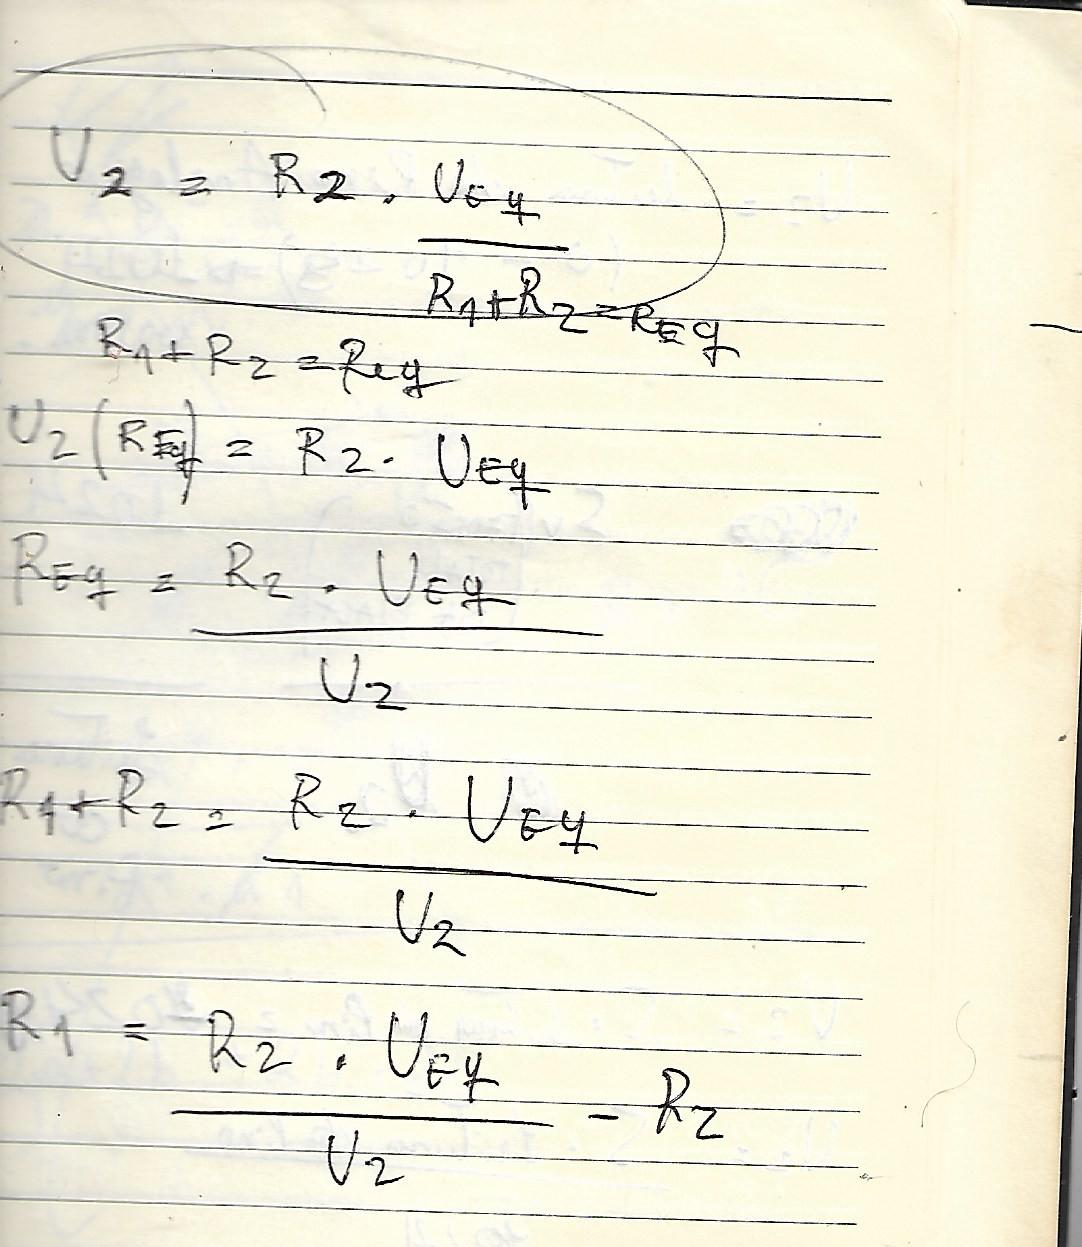 U2 = R2 . UEq
R1+R2 = REq
R1+R2 = Req
U2 (REq) = R2 . UEq
REq = R2 . UEq
U2
R1+R2 = R2 . UEq
U2
R1 = R2 . UEq - R2
U2